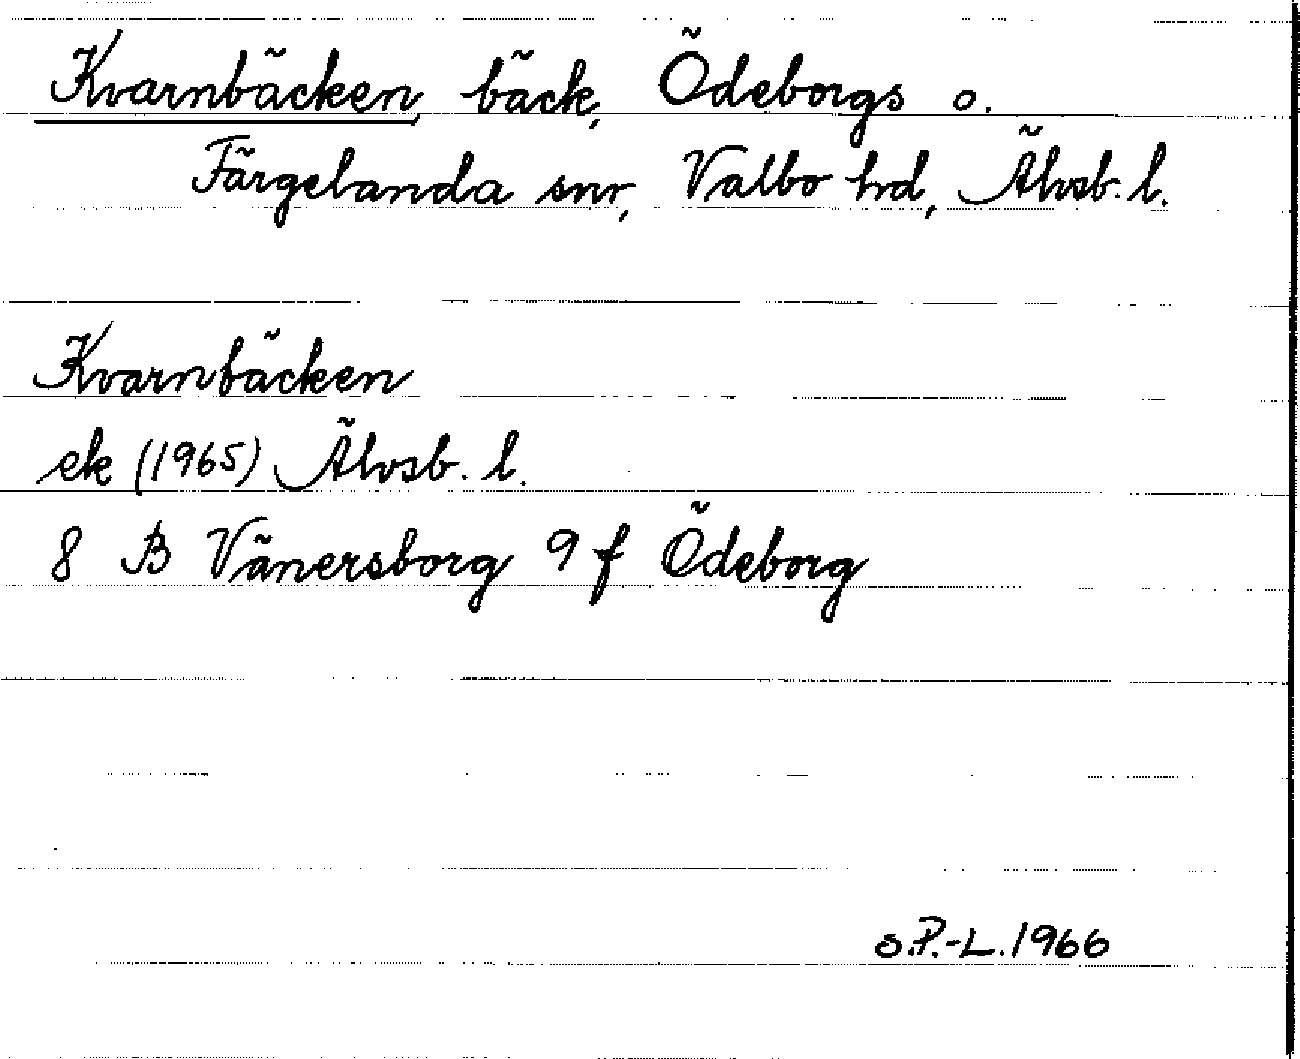 Kvarnbäcken, bäck, Ödeborgs o.
Färgelanda snr, Valbo hd, Älvsb. l.
Kvarnbäcken
ek (1965) Älvsb. l.
8 B Vänersborg 9 f Ödeborg
S.P.-L. 1966